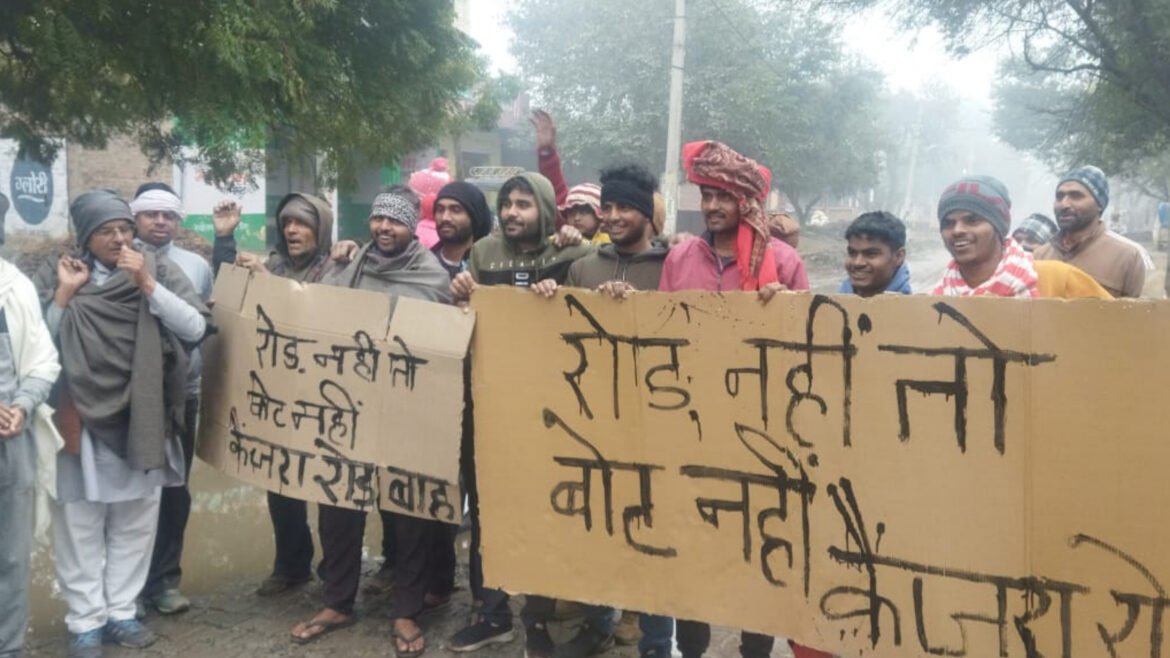 ग्लोरी
रोड़ नही तो
वोट नहीं
कैंजरा रोड़ बाह
रोड़ नहीं तो
बोट नहीं
कैंजरा रो